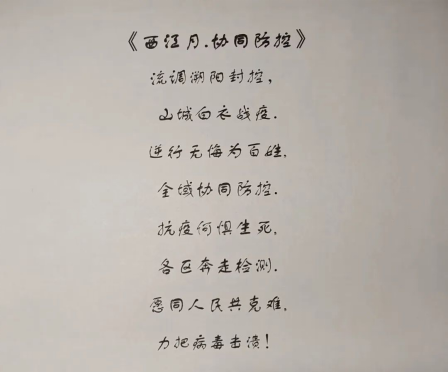 《西江月.协同防控》
流调溯阳封控，
山城白衣战疫.
逆行无悔为百姓.
全域协同防控.
抗疫何惧生死.
各区奔走检测.
愿同人民共克难.
力把病毒击溃!